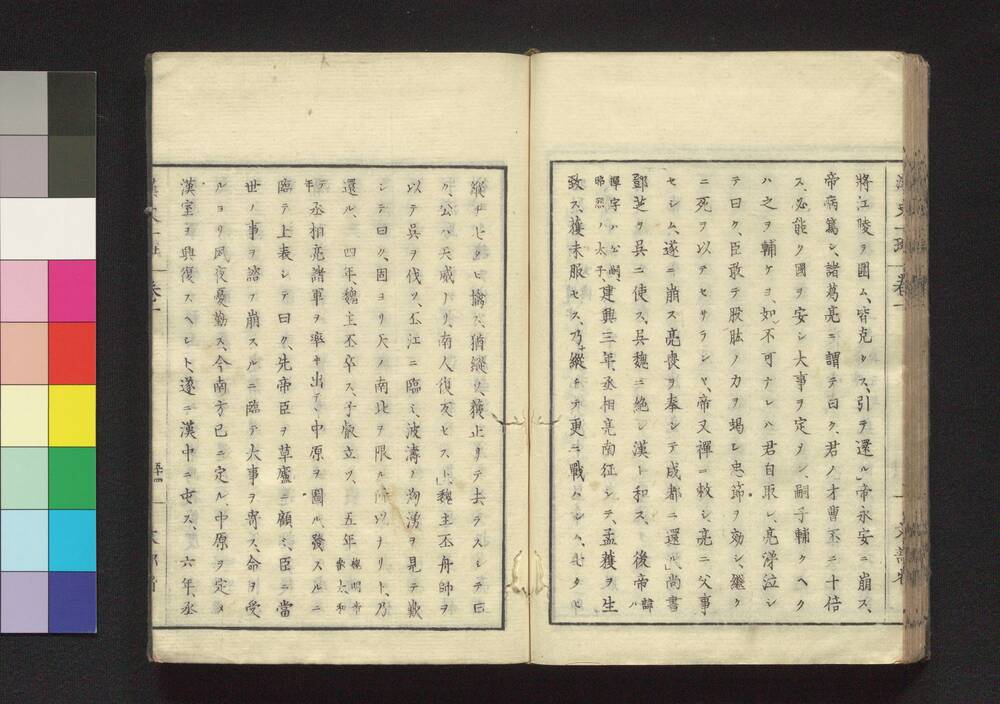 將江陵ヲ圍ム、皆克タス、引テ還ル」帝永安ニ崩ス、
帝病篤シ、諸葛亮ニ謂テ曰ク、君ノ才曹丕ニ十倍
ス、必能ク國ヲ安シ大事ヲ定メン、嗣子輔クヘク
ハ之ヲ輔ケヨ、如不可ナレハ君自取レ、亮涕泣シ
テ曰ク、臣敢テ股肱ノ力ヲ竭シ忠節ヲ効シ、繼ク
ニ死ヲ以テセサランヤ、帝又禪ニ敕シ、亮ニ父事
セシム、遂ニ崩ス亮喪ヲ奉シテ成都ニ還ル」尚書
鄧芝ヲ呉ニ使ス、呉魏ニ絶シ漢ト和ス、 後帝 諱ハ
禪字ハ公嗣、昭烈ノ太子 建興三年、丞相亮南征シテ、孟獲ヲ生
致ス、獲未服セス、乃縱チテ更ニ戰ハシム、七タヒ
縱チ七タヒ擒ス、猶縱ツ、獲止リテ去ラスシテ曰
ク、公ハ天威ナリ、南人復反セスト」魏主丕舟師ヲ
以テ呉ヲ伐ツ、丕江ニ臨ミ、波濤ノ洶湧ヲ見テ歎
シテ曰ク、固ヨリ天ノ南北ヲ限ル所以ナリト、乃
還ル、 四年、魏主丕卒ス、子叡立ツ、 五年 魏明帝叡太和
元年 丞相亮諸軍ヲ率ヰ出テ、中原ヲ圖ル、發スルニ
臨テ上表シテ曰ク、先帝臣ヲ草廬ニ顧ミ、臣ニ當
世ノ事ヲ諮フ崩スルニ臨テ大事ヲ寄ス、命ヲ受
ルヨリ夙夜憂勤ス、今南方已ニ定ル、中原ヲ定メ
漢室ヲ興復スヘシト遂ニ漢中ニ屯ス、 六年、丞